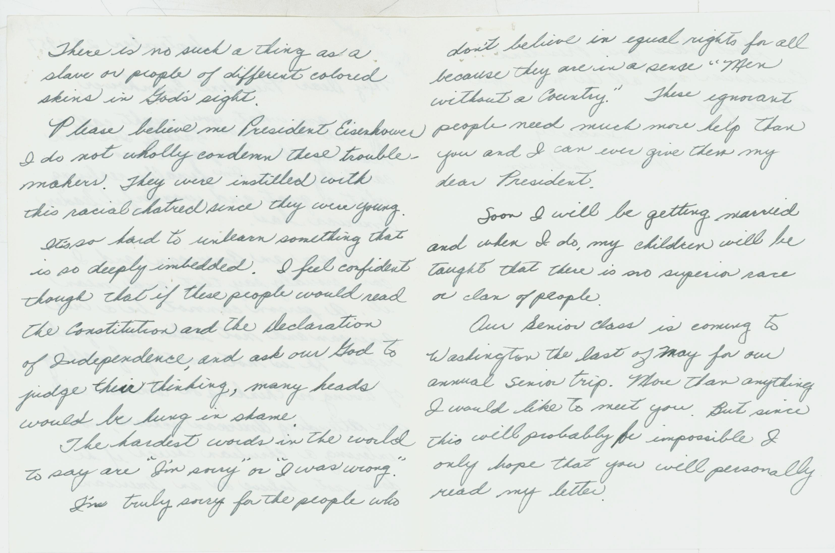 There is no such a thing as a
slave or people of different colored
skins in God's sight.
Please believe me President Eisenhower
I do not wholly condemn these trouble-
makers. They were instilled with
this racial hatred since they were young.
It's so hard to unlearn something that
is so deeply imbedded. I feel confident
though that if these people would read
the Constitution and the Declaration
of Independence, and ask our God to
judge their thinking, many heads
would be hung in shame.
The hardest words in the world
to say are "I'm sorry" or "I was wrong".
I'm truly sorry for the people who
don't believe in equal rights for all
because they are in a sense "Men
without a Country." These ignorant
people need much more help than
you and I can ever give them my
dear President.
Soon I will be getting married
and when I do, my children will be
taught that there is no superior race
or clan of people.
Our Senior class is coming to
Washington the last of May for our
annual senior trip. More than anything
I would like to meet you. But since
this will probably be impossible I
only hope that you will personally
read my letter.